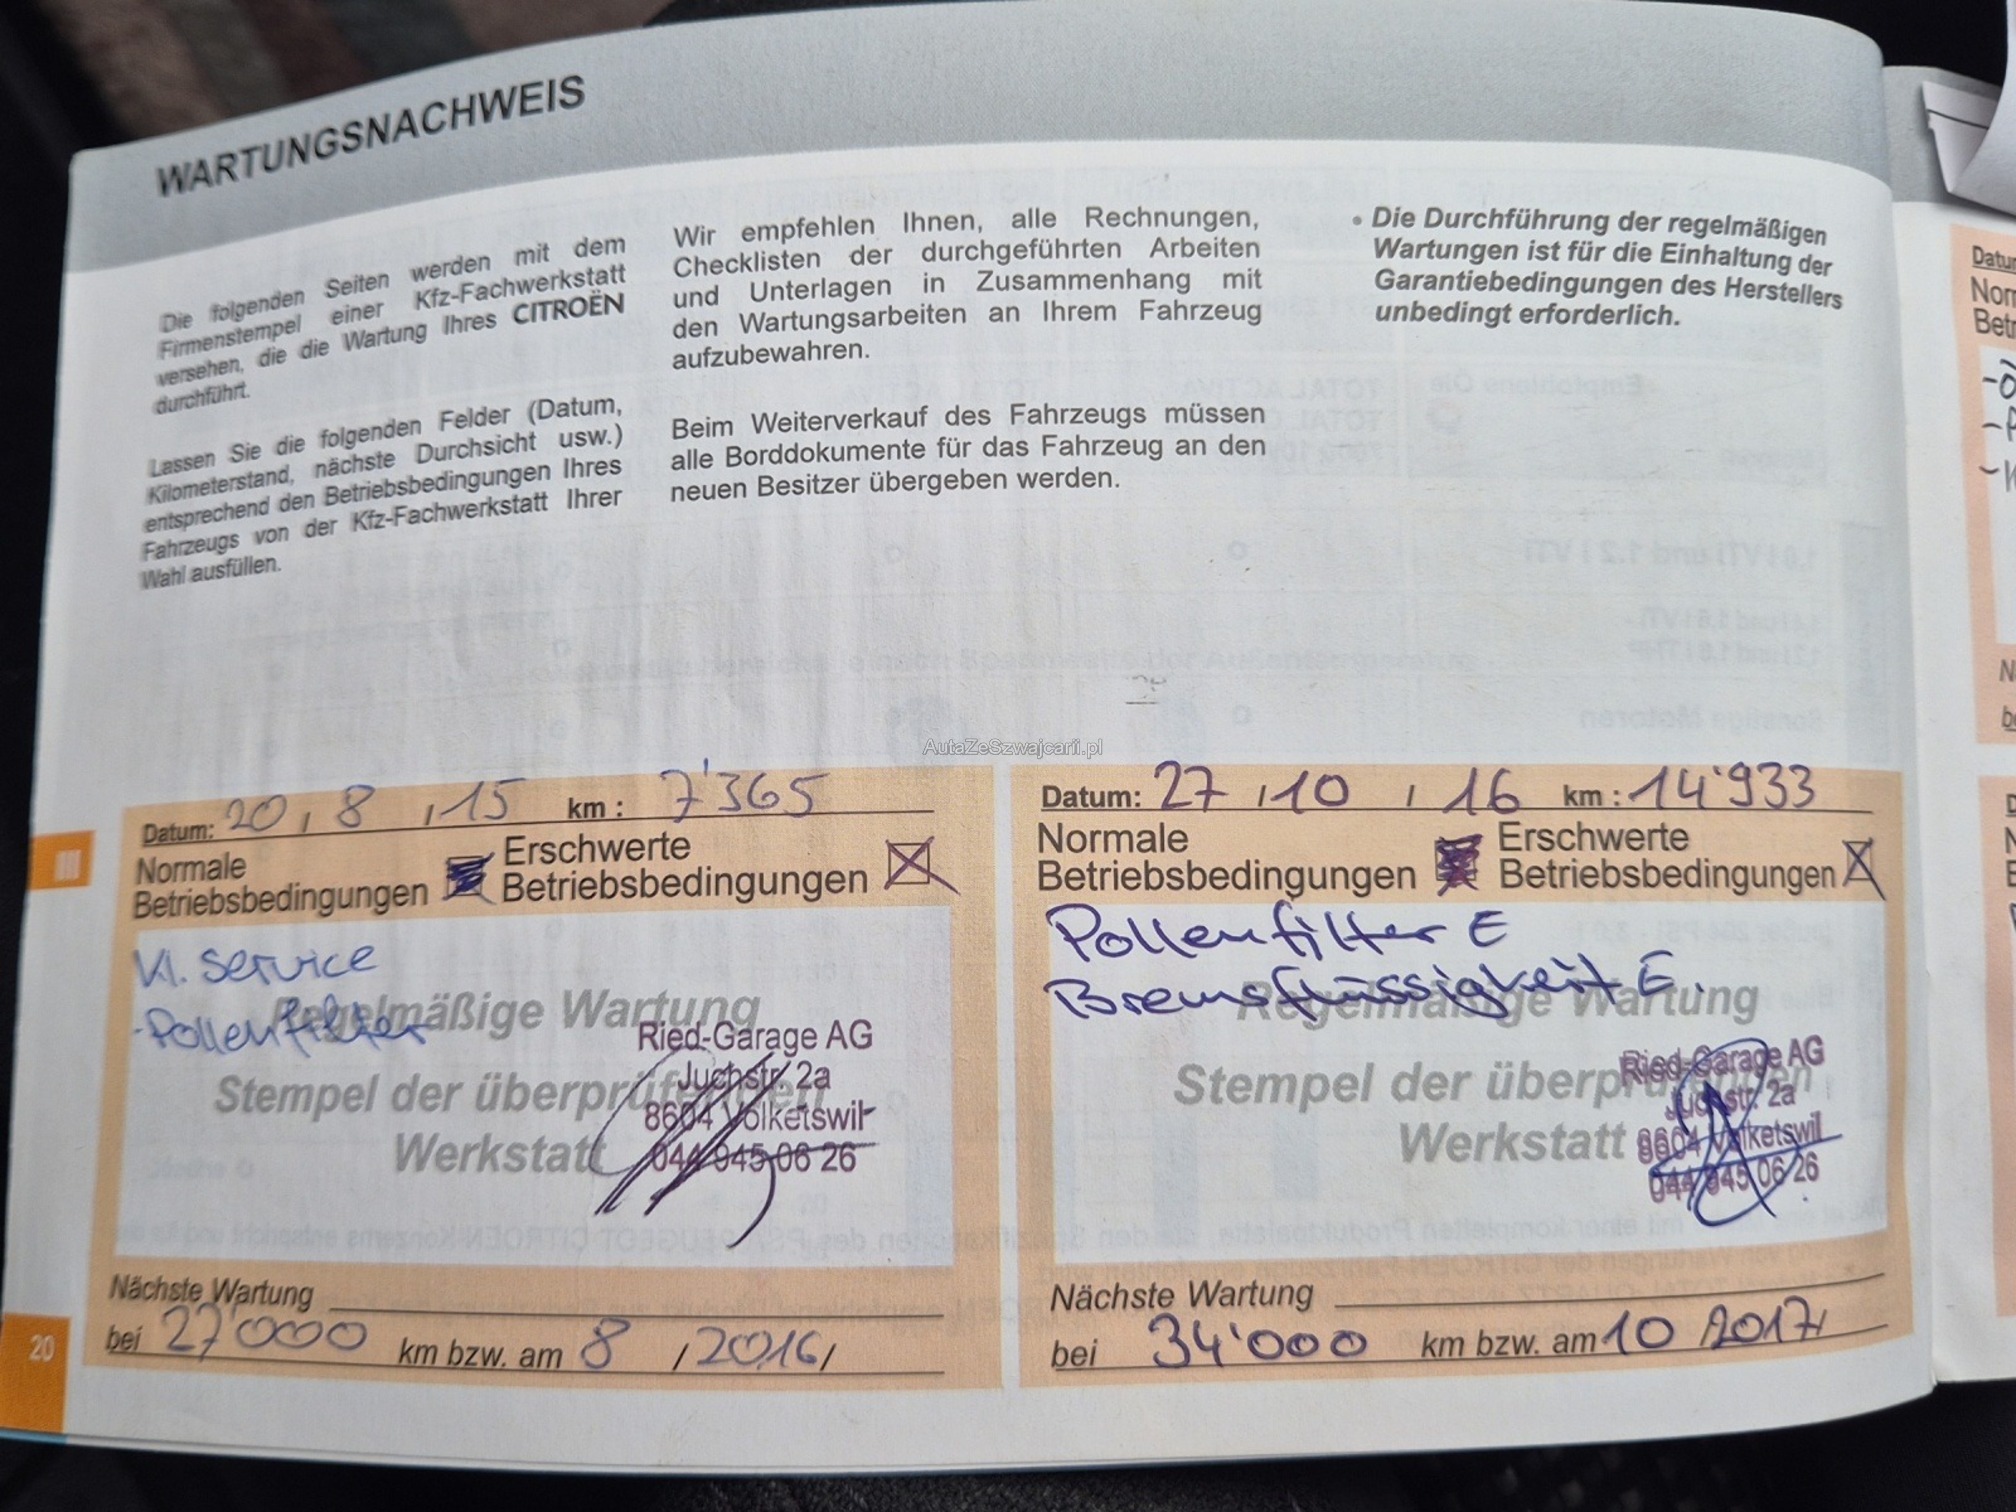 WARTUNGSNACHWEIS
Die folgenden Seiten werden mit dem
Firmenstempel einer Kfz-Fachwerkstatt
versehen, die die Wartung Ihres CITROËN
durchführt.
Lassen Sie die folgenden Felder (Datum,
Kilometerstand, nächste Durchsicht usw.)
entsprechend den Betriebsbedingungen Ihres
Fahrzeugs von der Kfz-Fachwerkstatt Ihrer
Wahl ausfüllen.
Wir empfehlen Ihnen, alle Rechnungen,
Checklisten der durchgeführten Arbeiten
und Unterlagen in Zusammenhang mit
den Wartungsarbeiten an Ihrem Fahrzeug
aufzubewahren.
Beim Weiterverkauf des Fahrzeugs müssen
alle Borddokumente für das Fahrzeug an den
neuen Besitzer übergeben werden.
• Die Durchführung der regelmäßigen
Wartungen ist für die Einhaltung der
Garantiebedingungen des Herstellers
unbedingt erforderlich.
AutaZeSzwajcarii.pl
Datum: 20 / 8 / 15 km : 7'365
Normale
Betriebsbedingungen
Erschwerte
Betriebsbedingungen
Kl. Service
-Pollenfilter
Regelmäßige Wartung
Stempel der überprüfenden
Werkstatt
Ried-Garage AG
Juchstr. 2a
8604 Volketswil
044 945 06 26
Nächste Wartung
bei 27'000 km bzw. am 8 / 2016 /
Datum: 27 / 10 / 16 km : 14'933
Normale
Betriebsbedingungen
Erschwerte
Betriebsbedingungen
Pollenfilter E
Bremsflüssigkeit E.
Regelmäßige Wartung
Stempel der überprüfenden
Werkstatt
Ried-Garage AG
Juchstr. 2a
8604 Volketswil
044 945 06 26
Nächste Wartung
bei 34'000 km bzw. am 10 / 2017 /
III
20